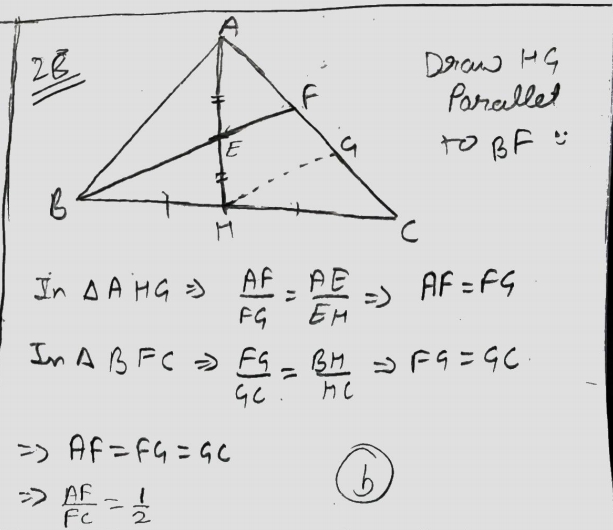 2B
A
F
E
G
B
H
C
Draw HG
Parallel
to BF
In Δ AHG ⇒ AF/FG = AE/EH ⇒ AF = FG
In Δ BFC ⇒ FG/GC = BH/HC ⇒ FG = GC
⇒ AF = FG = GC
⇒ AF/FC = 1/2
b